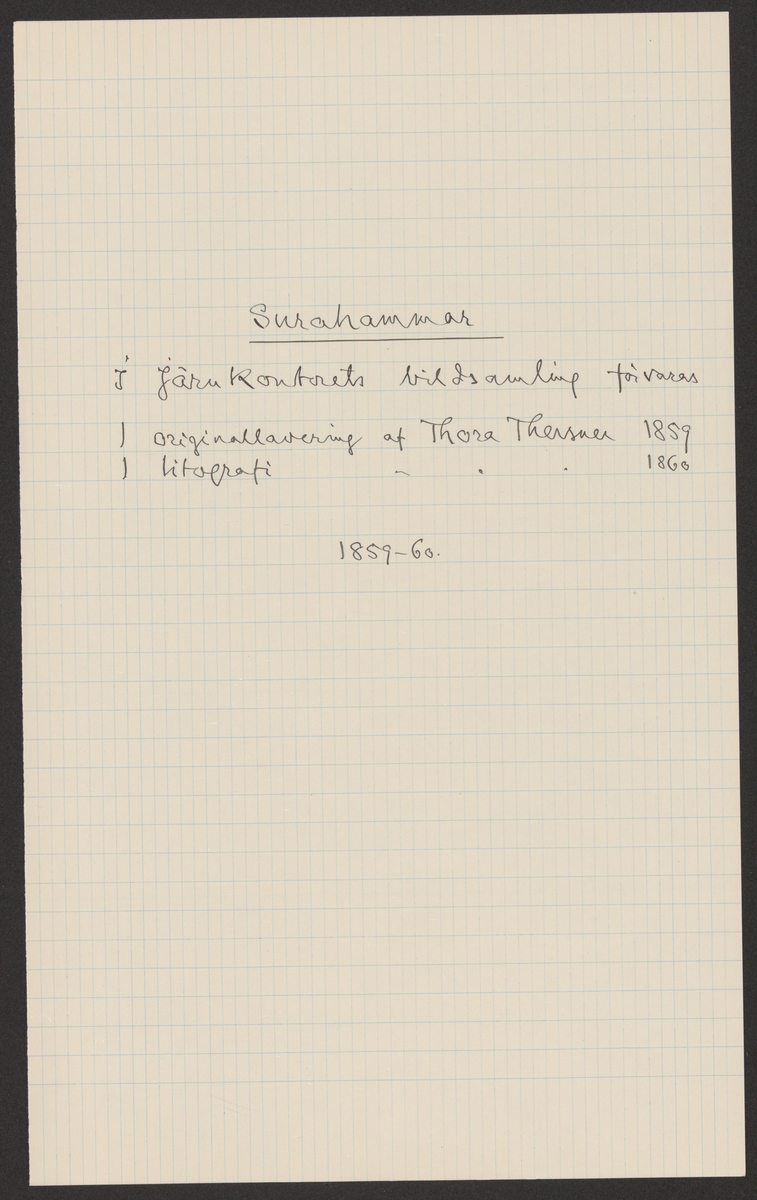 Surahammar
I Järnkontorets bildsamling förvaras
1 originallavering af Thora Thersner 1859
1 litografi " " " 1860
1859-60.